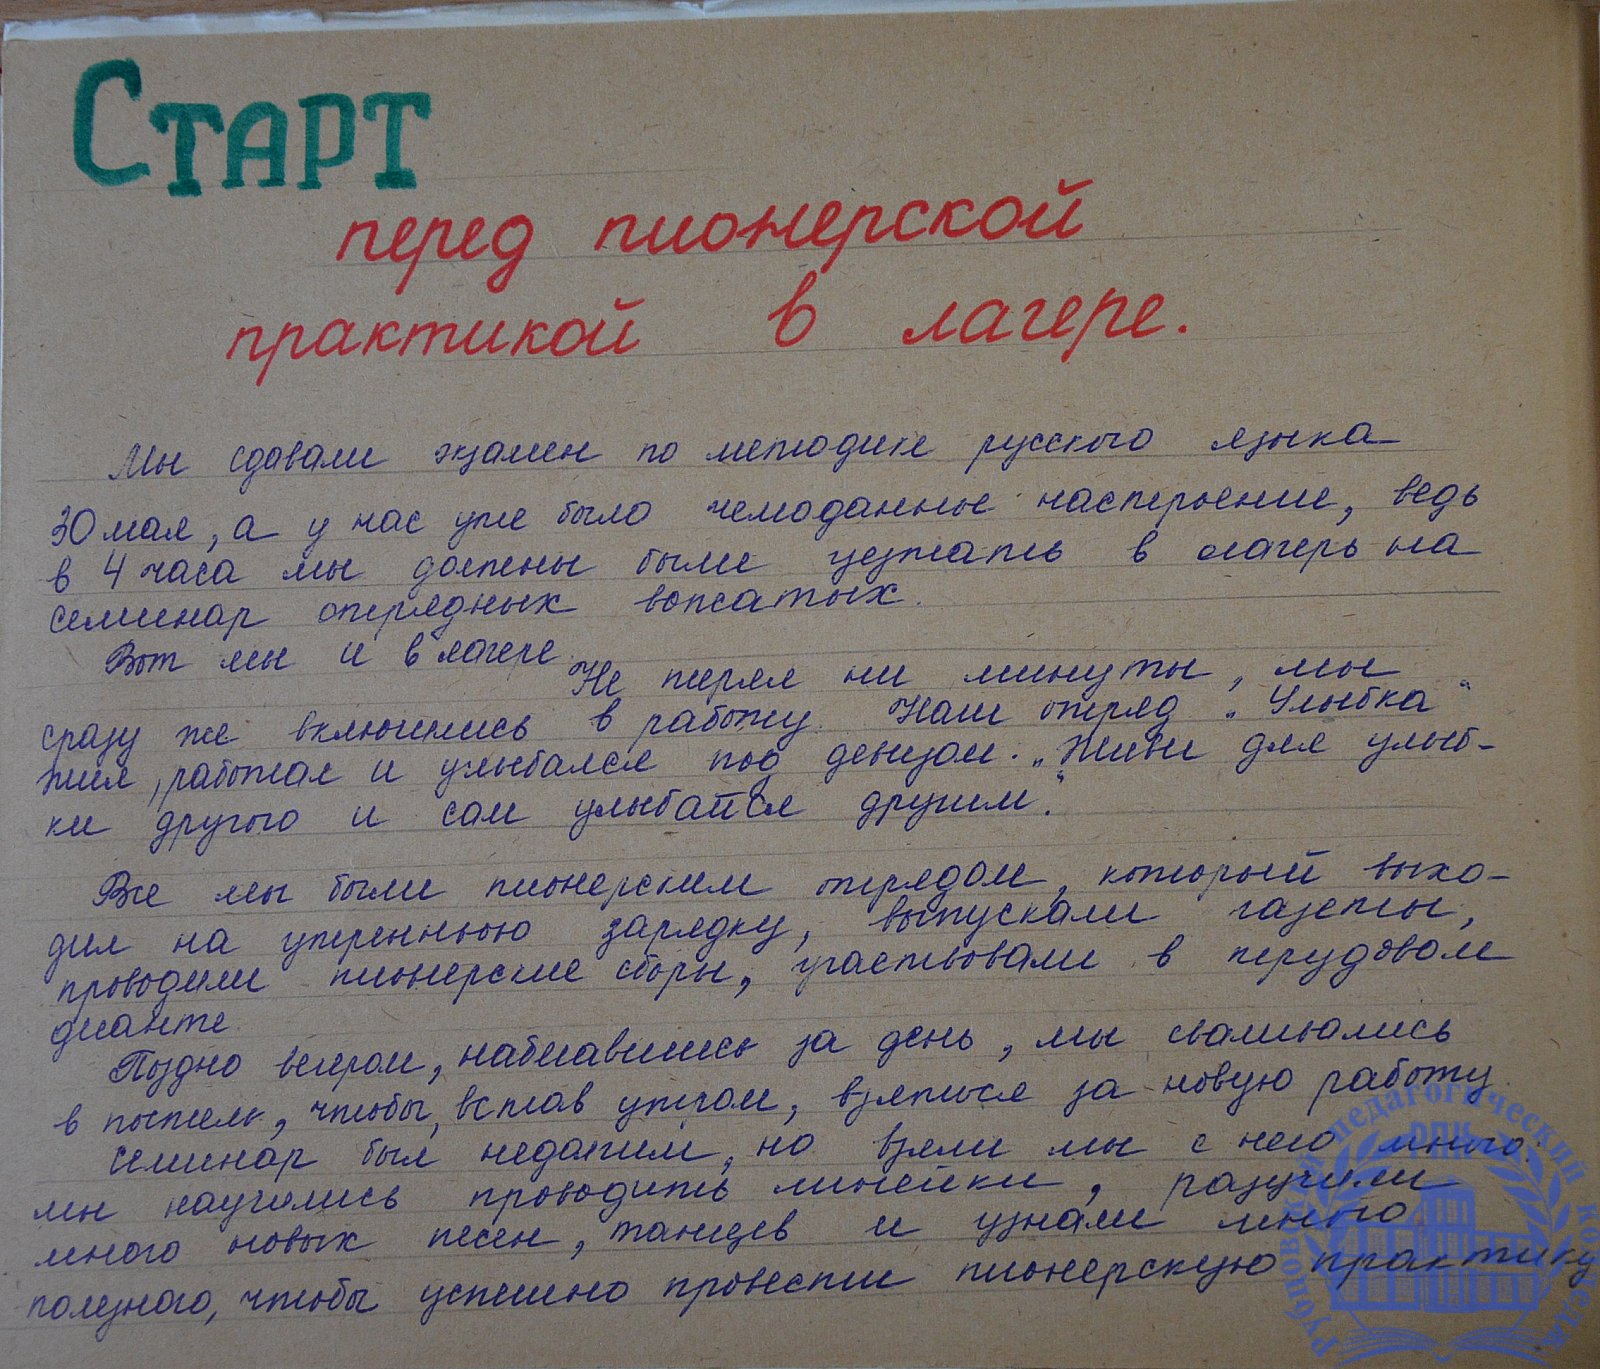 Старт
перед пионерской
практикой в лагере.
Мы сдавали экзамен по методике русского языка
30 мая, а у нас уже было чемоданное настроение, ведь
в 4 часа мы должны были уезжать в лагерь на
семинар отрядных вожатых.
Вот мы и в лагере.
Не теряя ни минуты, мы
сразу же включились в работу. Наш отряд „Улыбка“
жил, работал и улыбался под девизом: „Живи для улыб-
ки другого и сам улыбайся другим.“
Все мы были пионерским отрядом, который выхо-
дил на утреннюю зарядку, выпускали газеты,
проводили пионерские сборы, участвовали в трудовом
десанте.
Поздно вечером, набегавшись за день, мы сваливались
в постель, чтобы, встав утром, взяться за новую работу.
Семинар был недолгим, но взяли мы с него много:
мы научились проводить линейки, разучили
много новых песен, танцев и узнали много
полезного, чтобы успешно провести пионерскую практику
Рубцовский педагогический колледж
РПК